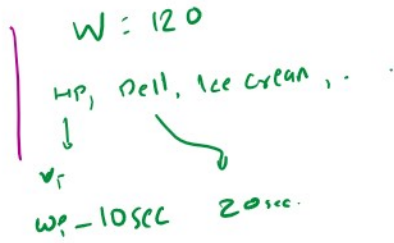 W : 120
HP, Dell, Ice crean , . .
wi - 10sec 20sec.